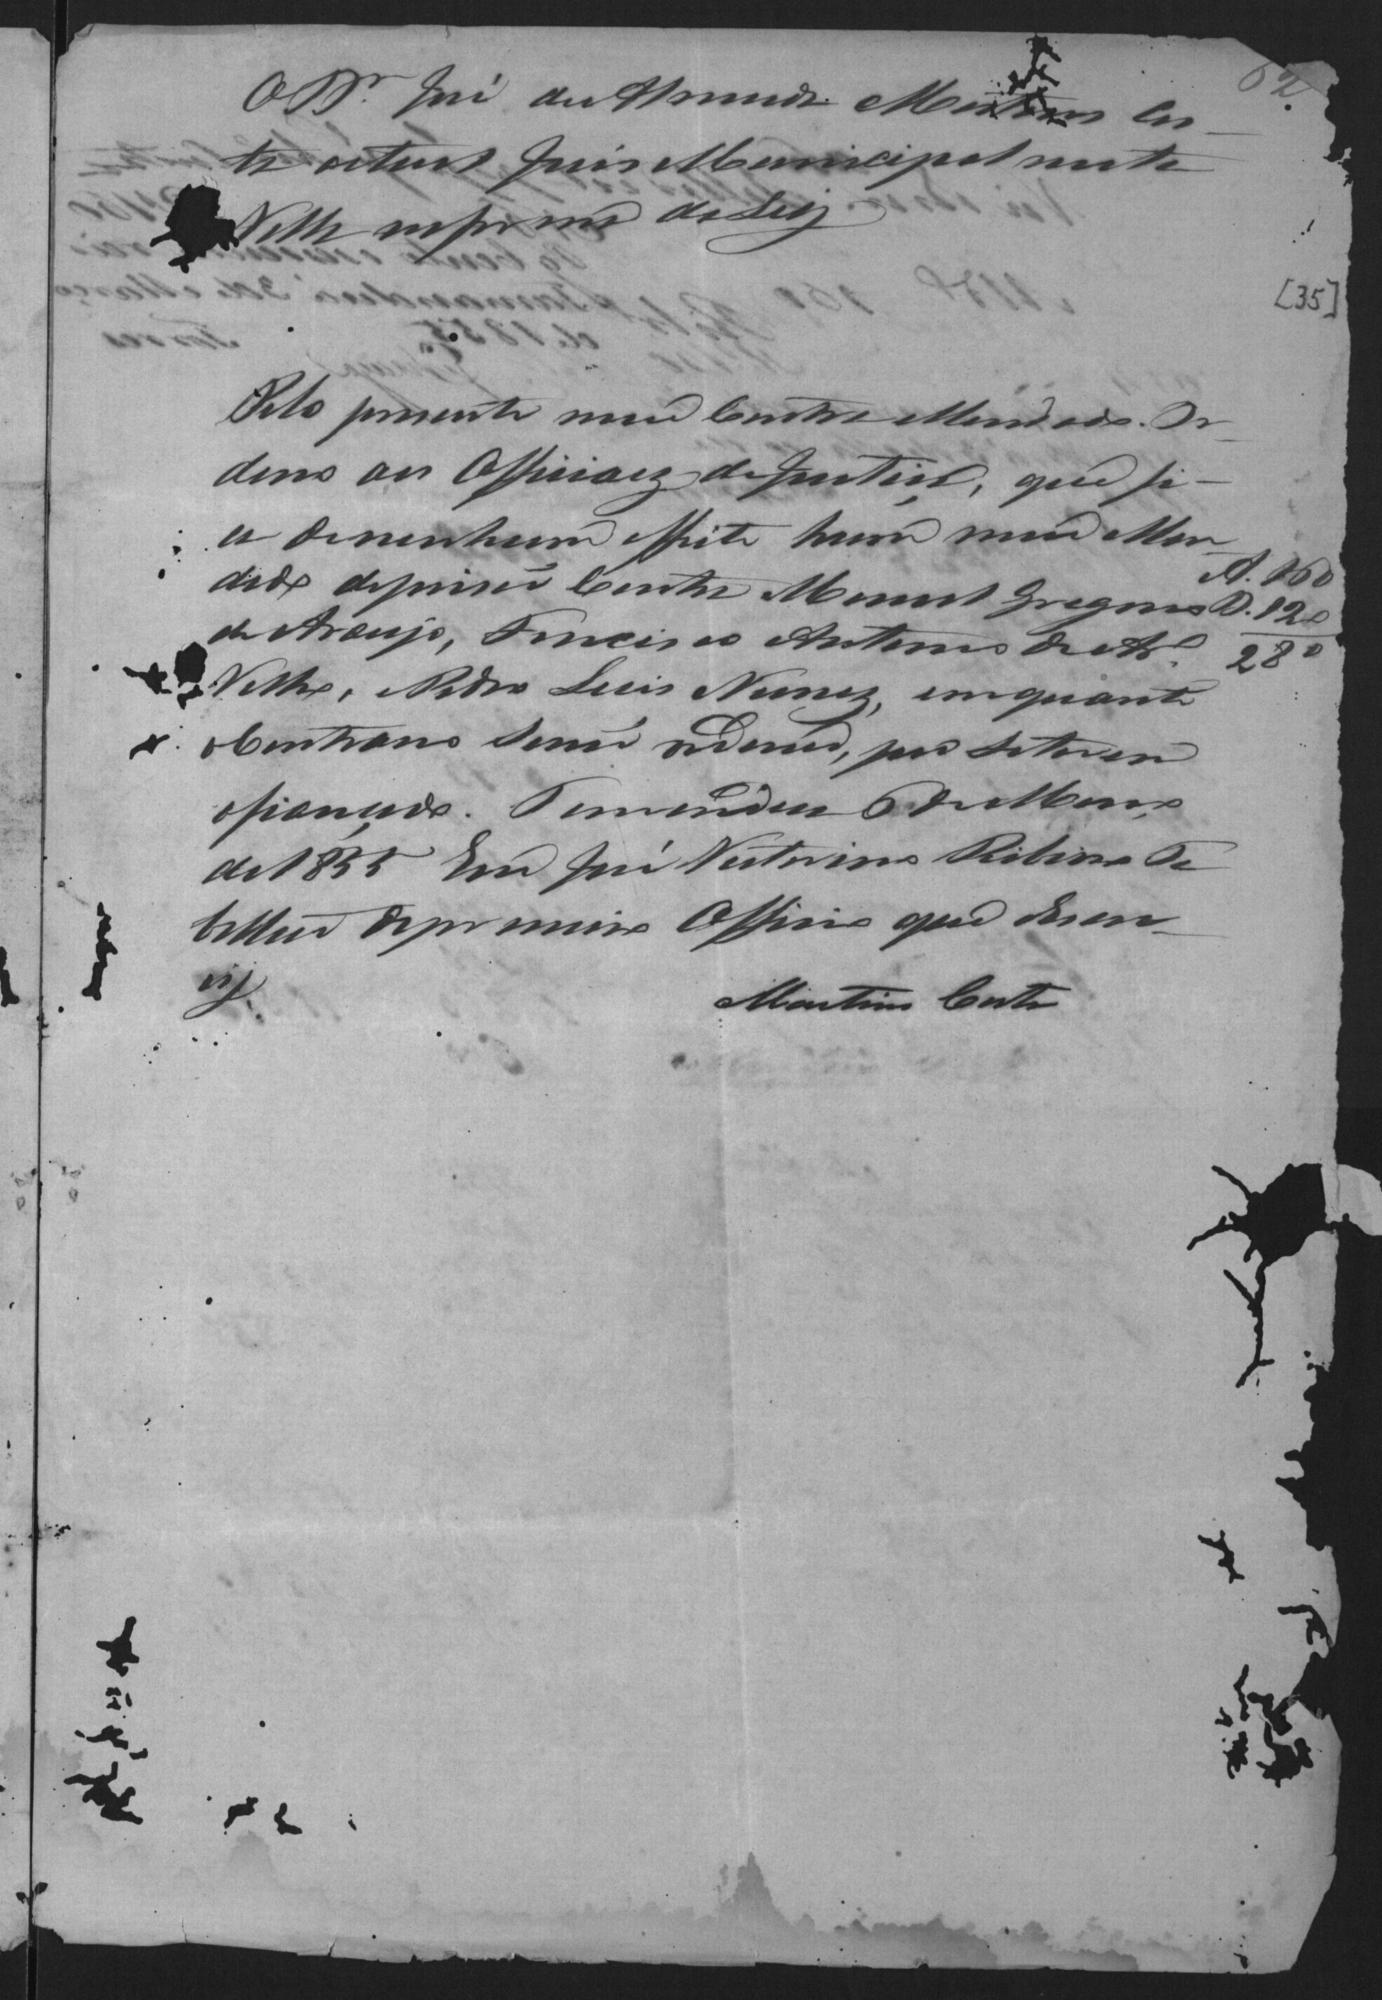 62
O Dr. José de Almeida Martins Cos-
ta actual Juis Municipal nesta
Villa na forma da Leij
[35]
Pelo presente meu Contra Mandado. Or-
deno aos Officiaez de Justiça, que fi-
ca de nenhum effeito hum meu Man
dado de prisão Contra Manoel Gregorio
de Araujo, Francisco Antonio de Ar.º
Velho, Pedro Luis Nunez, em quanto
o Contrario senão ordenar, por se terem
afiançado. Tamandua 6 de Março
de 1855 Eu José Victorino Ribeiro Ta
bellião do primeiro Officio que Escre-
vij.
A. 160
D. 120
280
Martins Costa